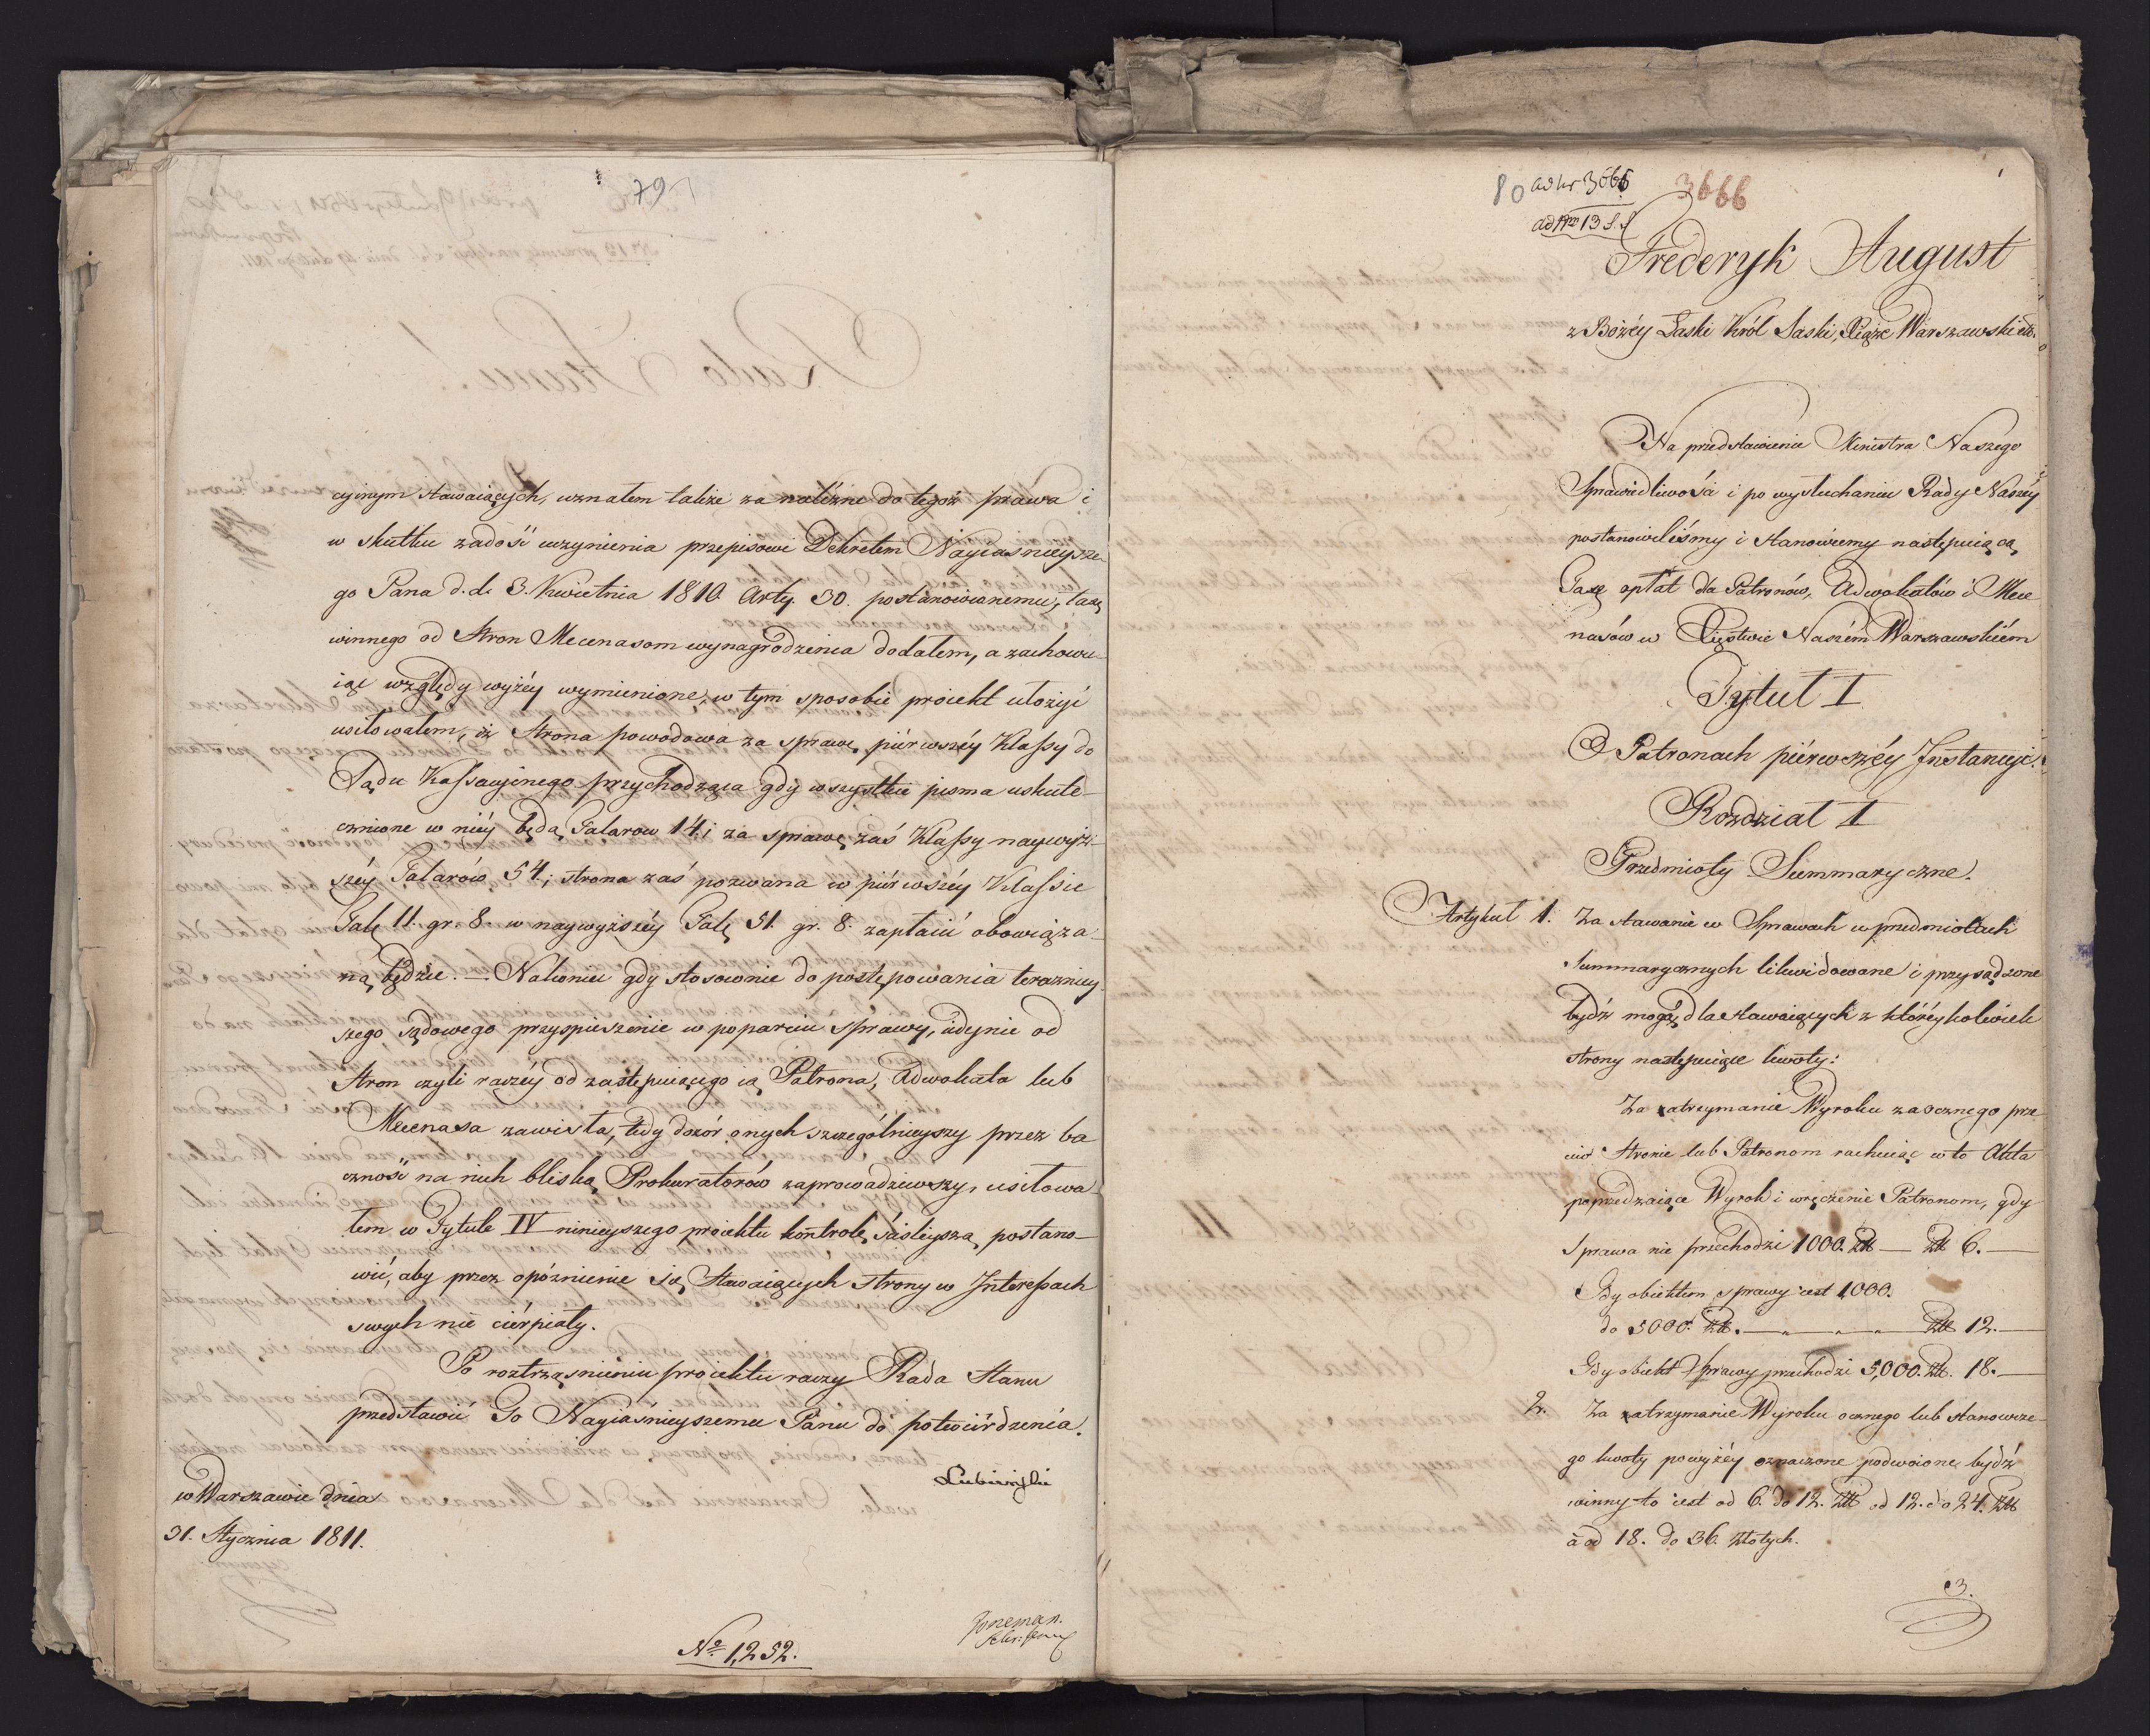 79
cyinym stawaiących, uznałem także za należne do tegoż prawa i
w skutku zadość uczynienia przepisowi Dekretem Nayiaśnieysze-
go Pana d. d. 3. Kwietnia 1810. Arty. 30. postanowionemu, taxę
winnego od Stron Mecenasom wynagrodzenia dodałem, a zachowu-
iąc względy wyżéy wymienione, w tym sposobie proiekt ułożyć
usiłowałem, iż Strona powodowa za sprawę piérwszéy Klassy do
Sądu Kassacyinego przychodząca gdy wszystkie pisma uskute-
cznione w niéy będą Talarow 14; za sprawę zaś Klassy naywyż-
széy Talarów 54.; strona zaś pozwana w piérwszéy Klassie
Tal. 11. gr. 8. w naywyższéy Tal. 51. gr. 8. zapłacić obowiąza-
ną będzie. — Nakoniec gdy stosownie do postępowania terazniey-
szego sądowego przyspieszenie w poparciu sprawy, iedynie od
Stron czyli raczéy od zastępuiącego ią Patrona, Adwokata lub
Mecenasa zawisła, tedy dozór onych szczególnieyszy przez ba-
czność na nich bliską Prokuratorów zaprowadziwszy, usiłowa-
łem w Tytule IV ninieyszego proiektu kontrolę ściśleyszą postano-
wić, aby przez opóznienie się Stawaiących strony w Interessach
swych nie ciérpiały.
Po roztrząśnieniu proiektu raczy Rada Stanu
przedstawić Go Nayiaśnieyszemu Panu do potwiérdzenia.
Lubieński
w Warszawie dnia
31. Stycznia 1811.
No 1,252.
80 ad Nr 3666 3666 1
ad Nrm 13 S. S.
Frederyk August
z Bożéy Łaski Król Saski, Xiąże Warszawski etc.
Na przedstawienie Ministra Naszego
Sprawiedliwości i po wysłuchaniu Rady Naszéy
postanowiliśmy i stanowiemy następuiącą
Taxę opłat dla Patronów, Adwokatów i Mece-
nasów w Xięstwie Naszém Warszawskiém
Tytuł I
O Patronach piérwszéy Instancyi.
Rozdział I
Przedmioty Summaryczne.
Artykuł 1. Za stawanie w Sprawach w przedmiotach
summarycznych likwidowane i przysądzone
bydź mogą dla stawaiących z któréykolwiek
strony następuiące kwoty:
Za zatrzymanie Wyroku zaocznego prze-
ciw Stronie lub Patronom rachuiąc w to Akta
poprzedzaiące Wyrok i wręczenie Patronom, gdy
Sprawa nie przechodzi 1000. Złł — Złł 6. —
Gdy obiektem sprawy iest 1000.
do 5000. Złł. — „ — „ — „ Złł 12. —
Gdy obiekt Sprawy przechodzi 5,000. Złł. 18. —
2. Za zatrzymanie Wyroku ocznego lub stanowcze-
go kwoty powyżéy oznaczone podwoione bydź
winny to iest od 6. do 12. Złł od 12. do 24. Złł
a od 18. do 36. złotych.
3.